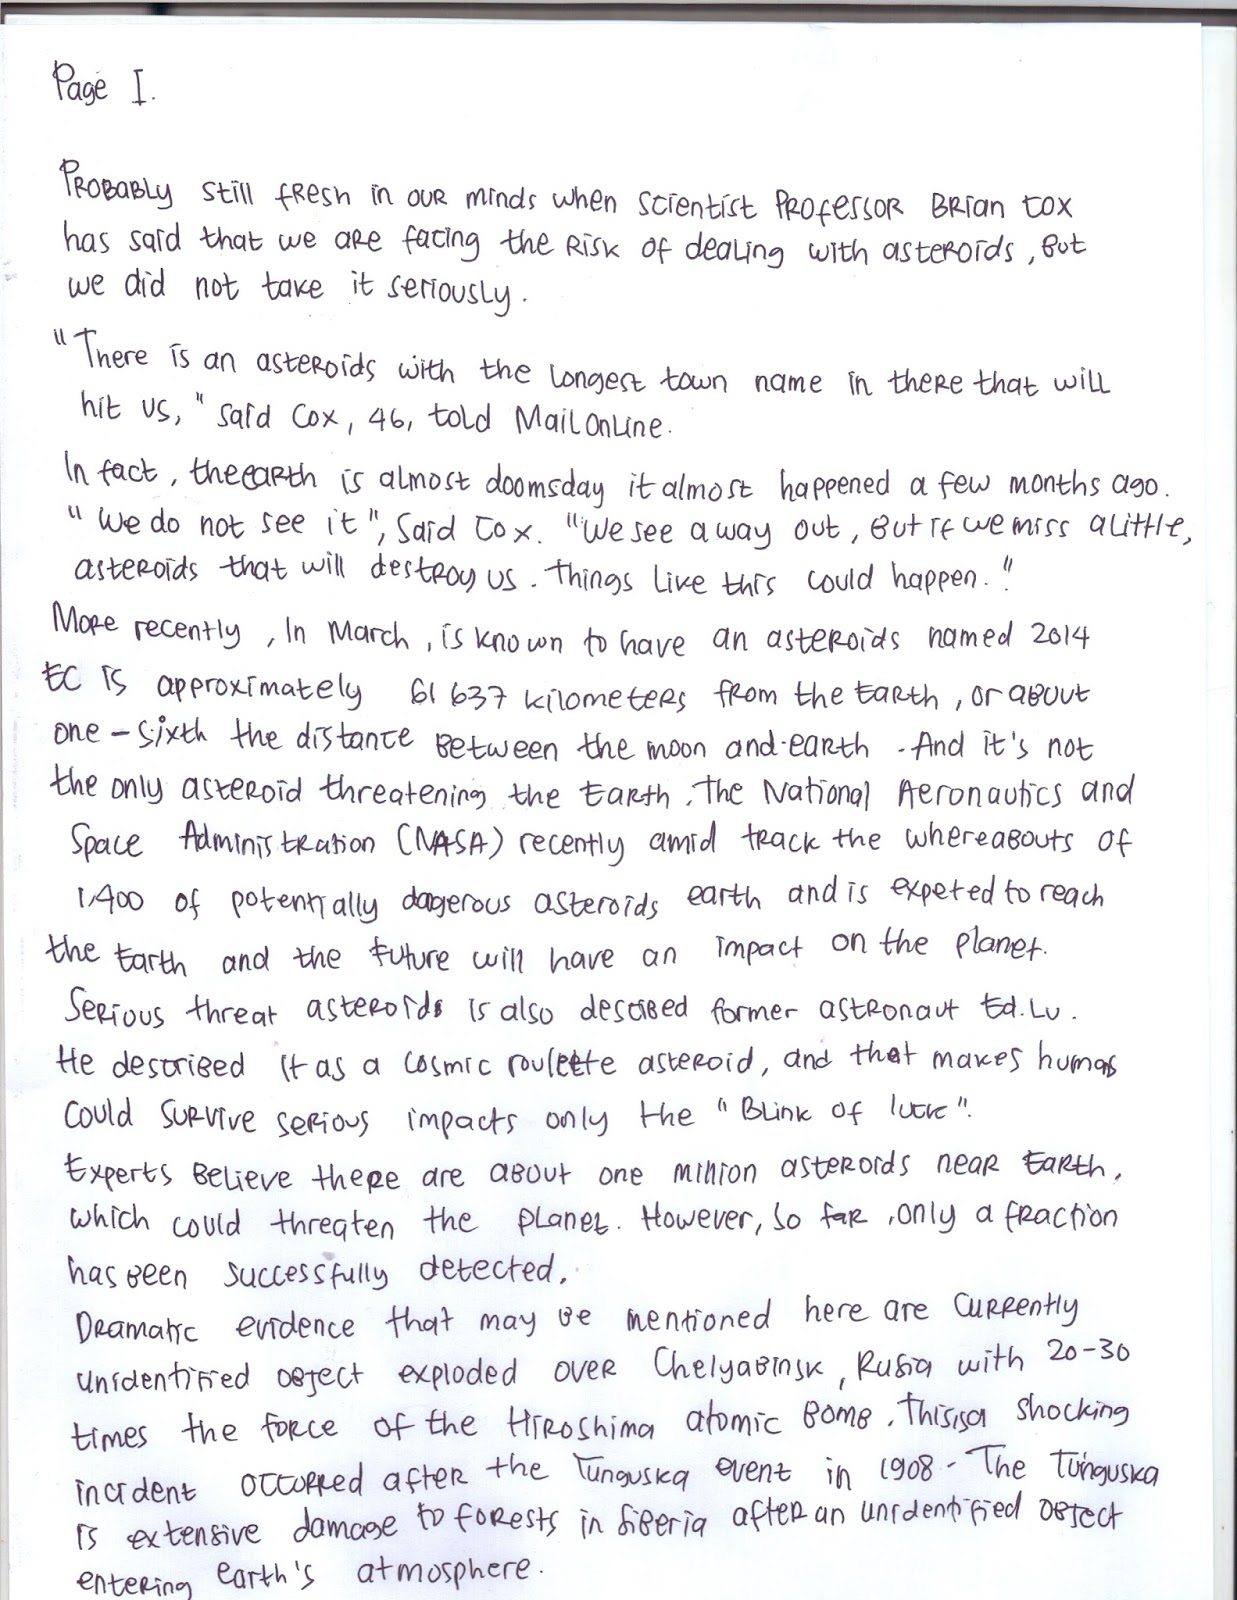 Page I.
Probably still fresh in our minds when scientist Professor Brian Cox
has said that we are facing the risk of dealing with asteroids, But
we did not take it seriously.
"There is an asteroids with the longest town name in there that will
hit us," said Cox, 46, told MailOnline.
In fact, the earth is almost doomsday it almost happened a few months ago.
"We do not see it", Said Cox. "We see a way out, But if we miss a little,
asteroids that will destroy us. Things like this could happen."
More recently, In March, is known to have an asteroids named 2014
EC is approximately 61 637 kilometers from the Earth, or about
one-sixth the distance Between the moon and earth. And it's not
the only asteroid threatening the Earth. The National Aeronautics and
Space Administration (NASA) recently amid track the whereabouts of
1,400 of potentially dagerous asteroids earth and is expeted to reach
the Earth and the future will have an impact on the planet.
Serious threat asteroids is also descibed former astronaut Ed.Lu.
He described it as a cosmic roulette asteroid, and that makes humans
Could survive serious impacts only the "Blink of luck".
Experts Believe there are about one million asteroids near Earth,
which could threaten the planet. However, so far, only a fraction
has been successfully detected.
Dramatic evidence that may be mentioned here are currently
unidentified object exploded over Chelyabinsk, Rusia with 20-30
times the force of the Hiroshima atomic Bomb. This is a shocking
incident occurred after the Tunguska event in 1908. The Tunguska
is extensive damage to forests in Siberia after an unidentified object
entering earth's atmosphere.